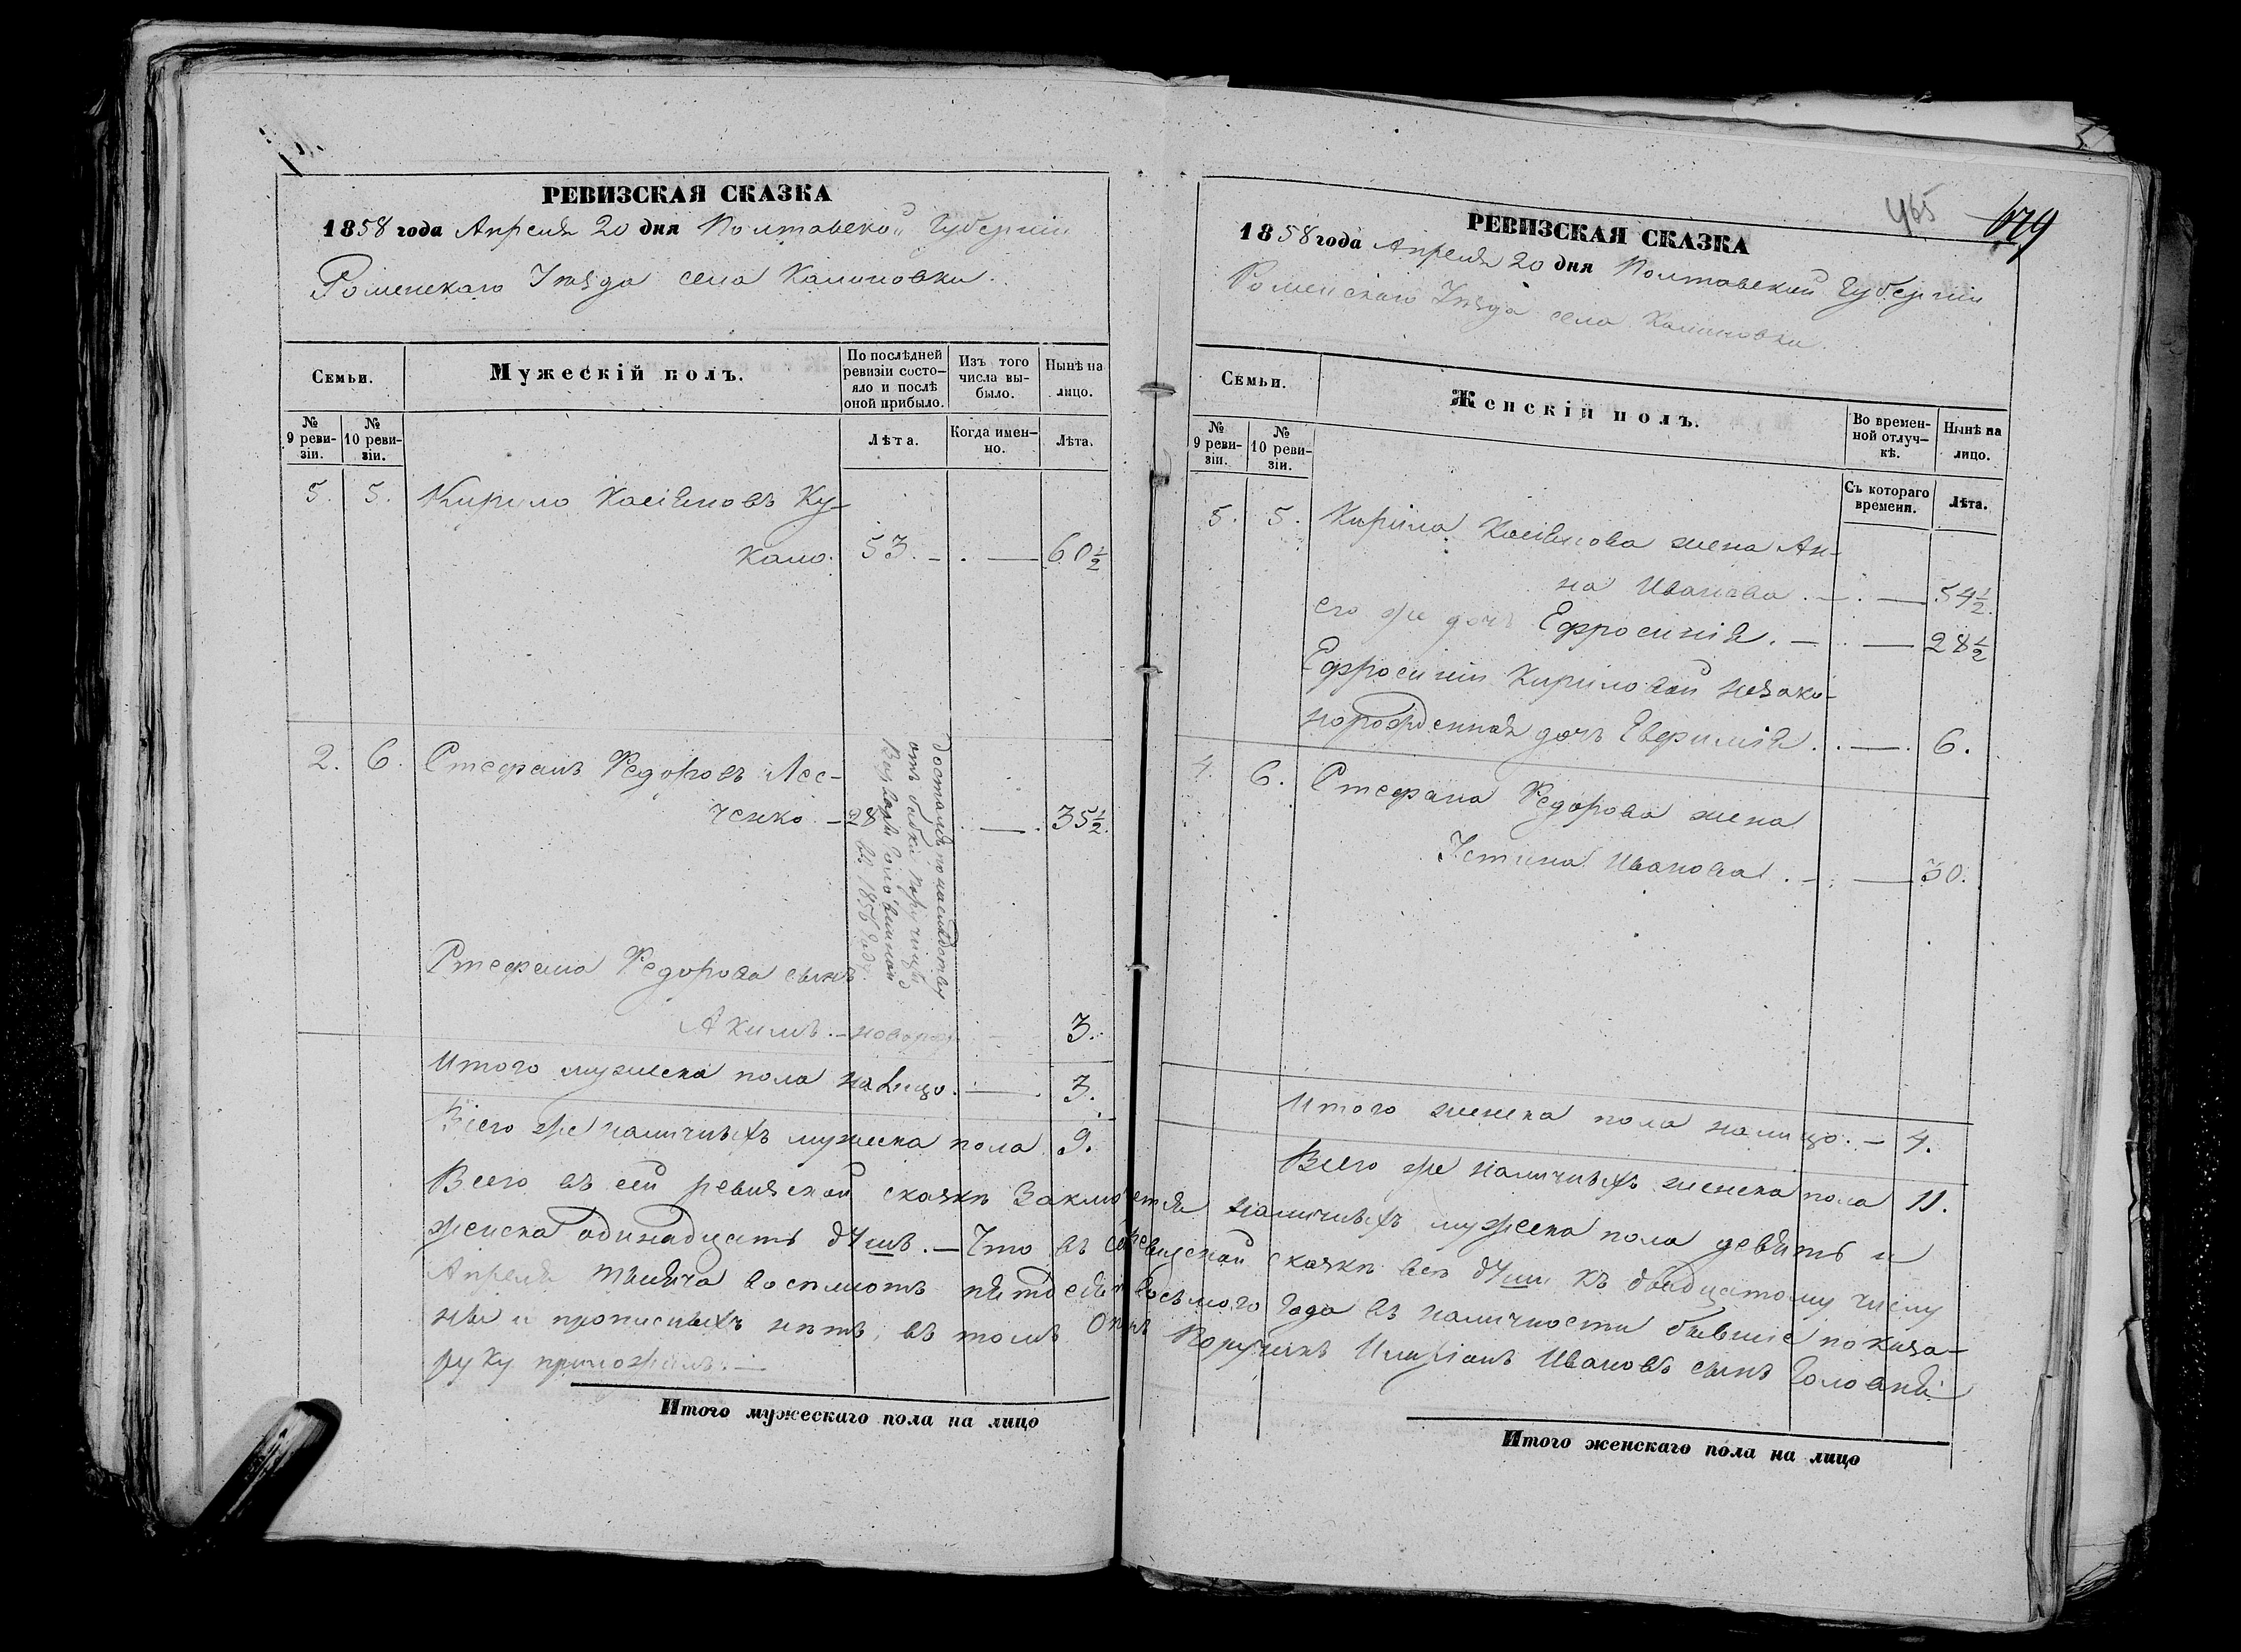 РЕВИЗСКАЯ СКАЗКА
1858 года Апреля 20 дня Полтавской Губернiи
Роменскаго Уѣзда села Калиновки.
Семьи.
Мужескiй полъ.
По послѣдней ревизiи состо-
яло и послѣ
оной прибыло.
Изъ того
числа вы-
было.
Нынѣ на
лицо.
№
9 реви-
зiи.
№
10 реви-
зiи.
Лѣта.
Когда имен-
но.
Лѣта.
5. 5. Кирило Касiяновъ Ку-
кало. 53. — . — 60½
2. 6. Стефанъ Федоровъ Лес-
ченко — 28 . — . 35½.
достался по наслѣдству
отъ бабки Поручицы
Варвары Головниной
въ 1856 году.
Стефана Федорова сынъ
Акимъ. — новорож 3.
Итого мужеска пола на лицо. — 3.
Всего же наличныхъ мужеска пола 9.
465 679
РЕВИЗСКАЯ СКАЗКА
1858 года Апреля 20 дня Полтавской Губернiи
Роменскаго Уѣзда села Калиновки.
Семьи.
Женскiй полъ.
Во времен-
ной отлуч-
кѣ.
Нынѣ на
лицо.
№
9 реви-
зiи.
№
10 реви-
зiи.
Съ котораго
времени.
Лѣта.
5. 5. Кирила Касiянова жена Ан-
на Иванова . — . — 54½.
его же дочь Ефросинiя. — . — 28½
Ефросинiи Кириловой незако-
норожденная дочь Евфимiя. . — . 6.
4. 6. Стефана Федорова жена
Устина Иванова . — . — 30.
Итого женска пола на лицо. — 4.
Всего же наличныхъ женска пола 11.
Всего въ сей ревизской сказкѣ заключается наличныхъ мужеска пола девять и
женска одинадцать душъ. — Что въ сей ревизской сказкѣ всѣ души къ двадцатому числу
Апреля тысяча восемьсотъ пятдесятъ восьмого года въ наличности бывшiе показа-
ны и прописныхъ нѣтъ, въ томъ Поручикъ Иванов сынъ Головня
руку приложилъ. —
Итого мужескаго пола на лицо
Итого женскаго пола на лицо